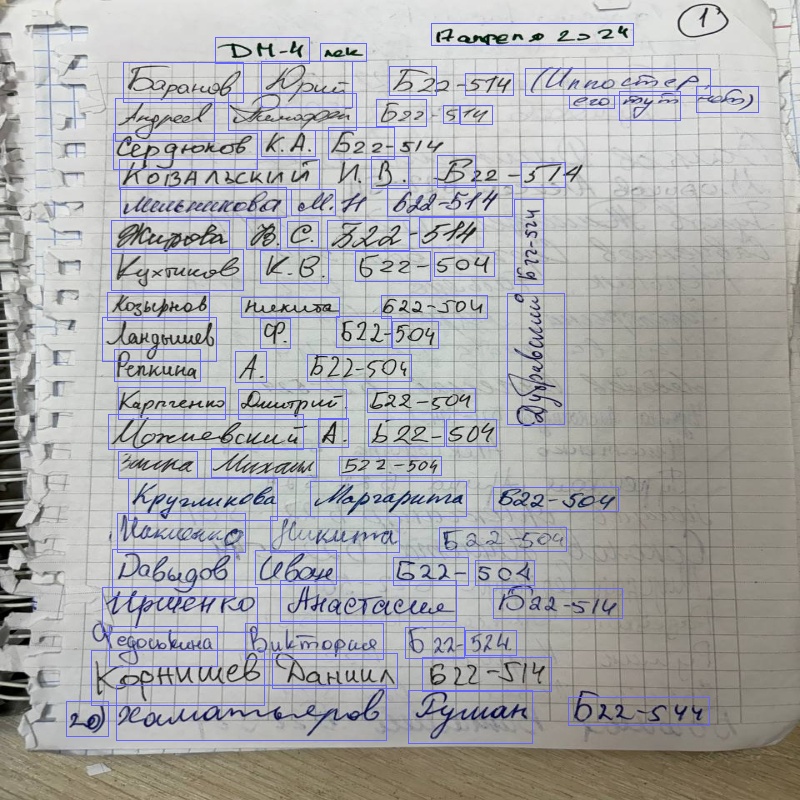 1
17 апреля 2024
DM-4 лек
Баранов Юрий Б22-514 (Иппостер,
его тут нет)
Андреев Тимофей Б22-514
Сердюков К.А. Б22-514
Ковальский И. В. Б22-514
Мельникова М. Н Б22-514
Жирова В. С. Б22-514
Кухтиков К.В. Б22-504
Козырнов Никита Б22-504
Ландышев Ф. Б22-504
Репкина А. Б22-504
Карпченко Дмитрий Б22-504
Можиевский А. Б22-504
Заика Михаил Б22-504
Кругликова Маргарита Б22-504
Никита Б22-504
Давыдов Иван Б22-504
Иршенко Анастасия Б22-514
Федоськина Виктория Б22-524
Корнишев Даниил Б22-514
20) Хаматьяров Руслан Б22-544
Дубревский Б22-524